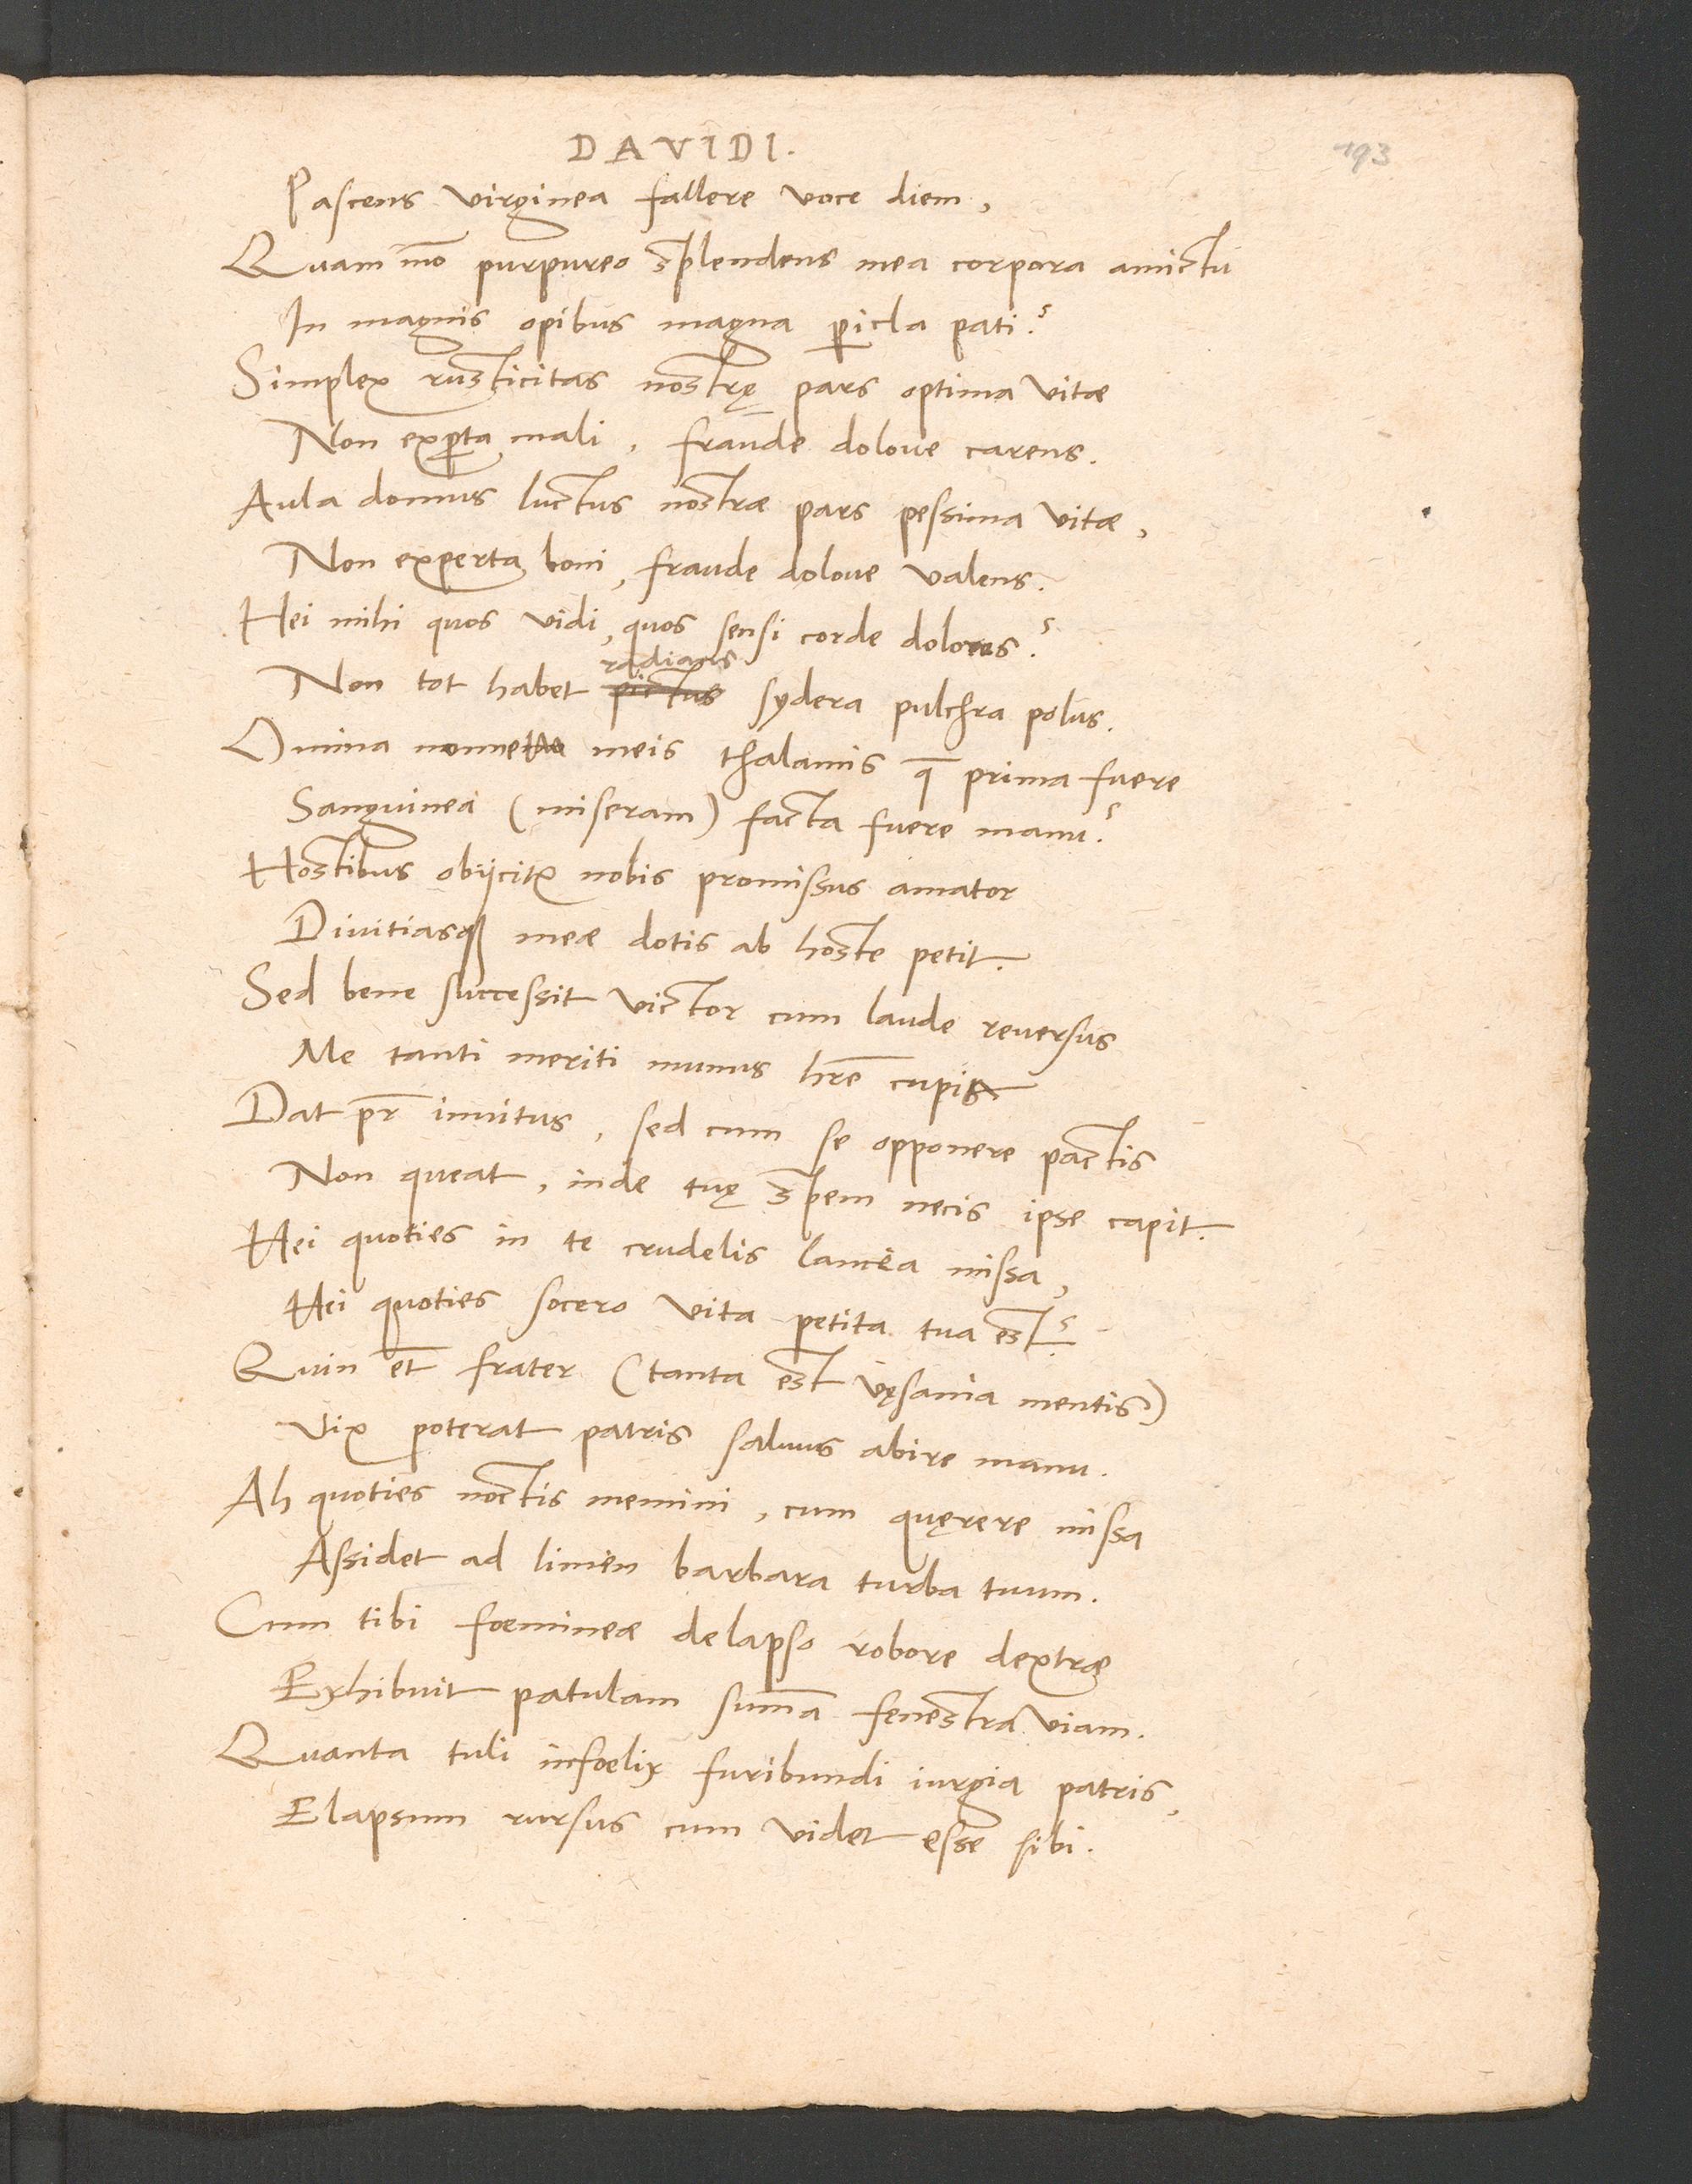 DAVIDI.
193
Pascens virginea fallere voce diem,
Quam mō purpureo splendens mea corpora amictu
In magnis opibus magna p̱icla pati?
Simplex rusticitas nostrę pars optima vitæ
Non exp̱ta mali, fraude doloue carens.
Aula domus luctus nostræ pars pessima vitæ,
Non experta boni, fraude doloue valens.
Hei mihi quos vidi, quos sensi corde dolores?
radians
Non tot habet pictus sydera pulchra polus.
Omina nonne meis thalamis q̄ prima fuere
Sanguinea (miseram) facta fuere manu?
Hostibus obijcitꝛ nobis promissus amator
Diuitiasqꝫ meæ dotis ab hoste petit.
Sed bene successit victor cum laude reuersus
Me tanti meriti munus hr̄e cupit
Dat pr̄ inuitus, sed cum se opponere pactis
Non queat, inde tuę spem necis ipse capit.
Hei quoties in te crudelis lancea missa,
Hei quoties socero vita petita tua est?
Quin et frater (tanta est vęsania mentis)
Vix poterat patris saluus abire manu.
Ah quoties noctis memini, cum quęrere missa
Assidet ad limen barbara turba tuum.
Cum tibi foemineæ delapso robore dextræ
Exhibuit patulam sum̄a fenestra viam.
Quanta tuli infoelix furibundi iurgia patris,
Elapsum rursus cum videt esse sibi.